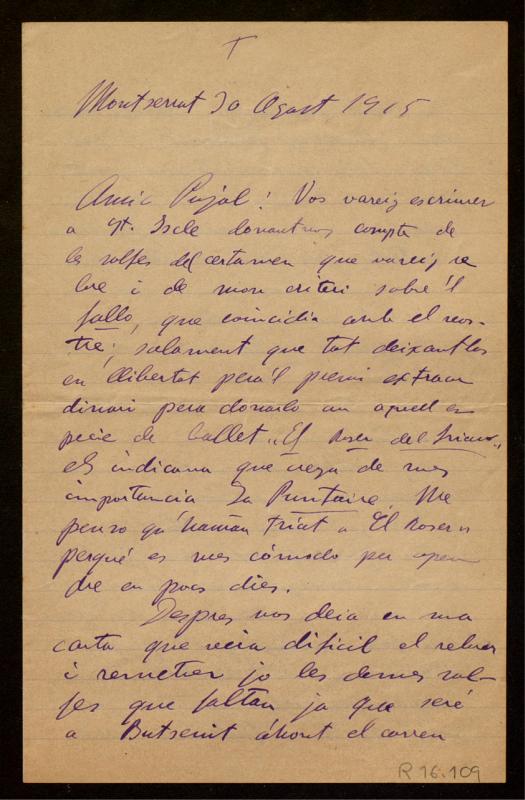 Montserrat 30 Agost 1915
Amic Pujol: Vos vareig escriurer
a St. Iscle donantvos compte de
les solfes del certamen que vareig re
bre i de mon criteri sobre'l
fallo, que coincidia amb el vos-
tre; solament que tot deixantlos
en llibertat pera'l premi extraor
dinari pera donarlo an aquell es
pecie de ballet „El Roser del
els indicava que veya de mes
importancia La Puntaire. Me
penso qu'hauran triat a El Roser
perqué es mes cómodo per apen
dre en pocs dies.
Despres vos deia en ma
carta que veia dificil el rebrer
i remetrer jo les demes sol-
fes que faltan ja que seré
a Butsenit áhont el correu
R 16.109